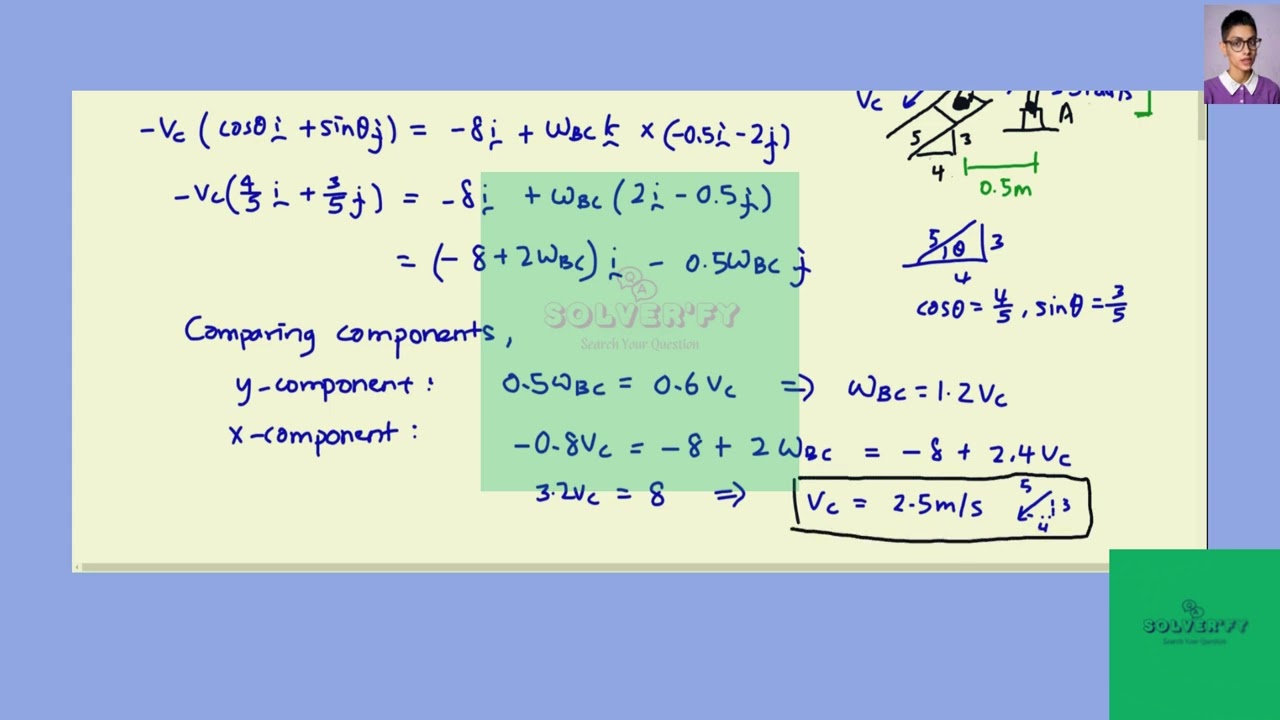 -Vc (cosθ i + sinθ j) = -8i + ωBC k × (-0.5i - 2j)
-Vc(4/5 i + 3/5 j) = -8i + ωBC (2i - 0.5j)
= (-8 + 2ωBC) i - 0.5ωBC j
Comparing components,
y-component: 0.5ωBC = 0.6Vc ⇒ ωBC = 1.2Vc
x-component: -0.8Vc = -8 + 2ωBC = -8 + 2.4Vc
3.2Vc = 8 ⇒ Vc = 2.5m/s 5 3 4
Vc
A
5 3
4
0.5m
5 θ 3
4
cosθ = 4/5, sinθ = 3/5
SOLVER'FY
Search Your Question
SOLVER'FY
Search Your Question